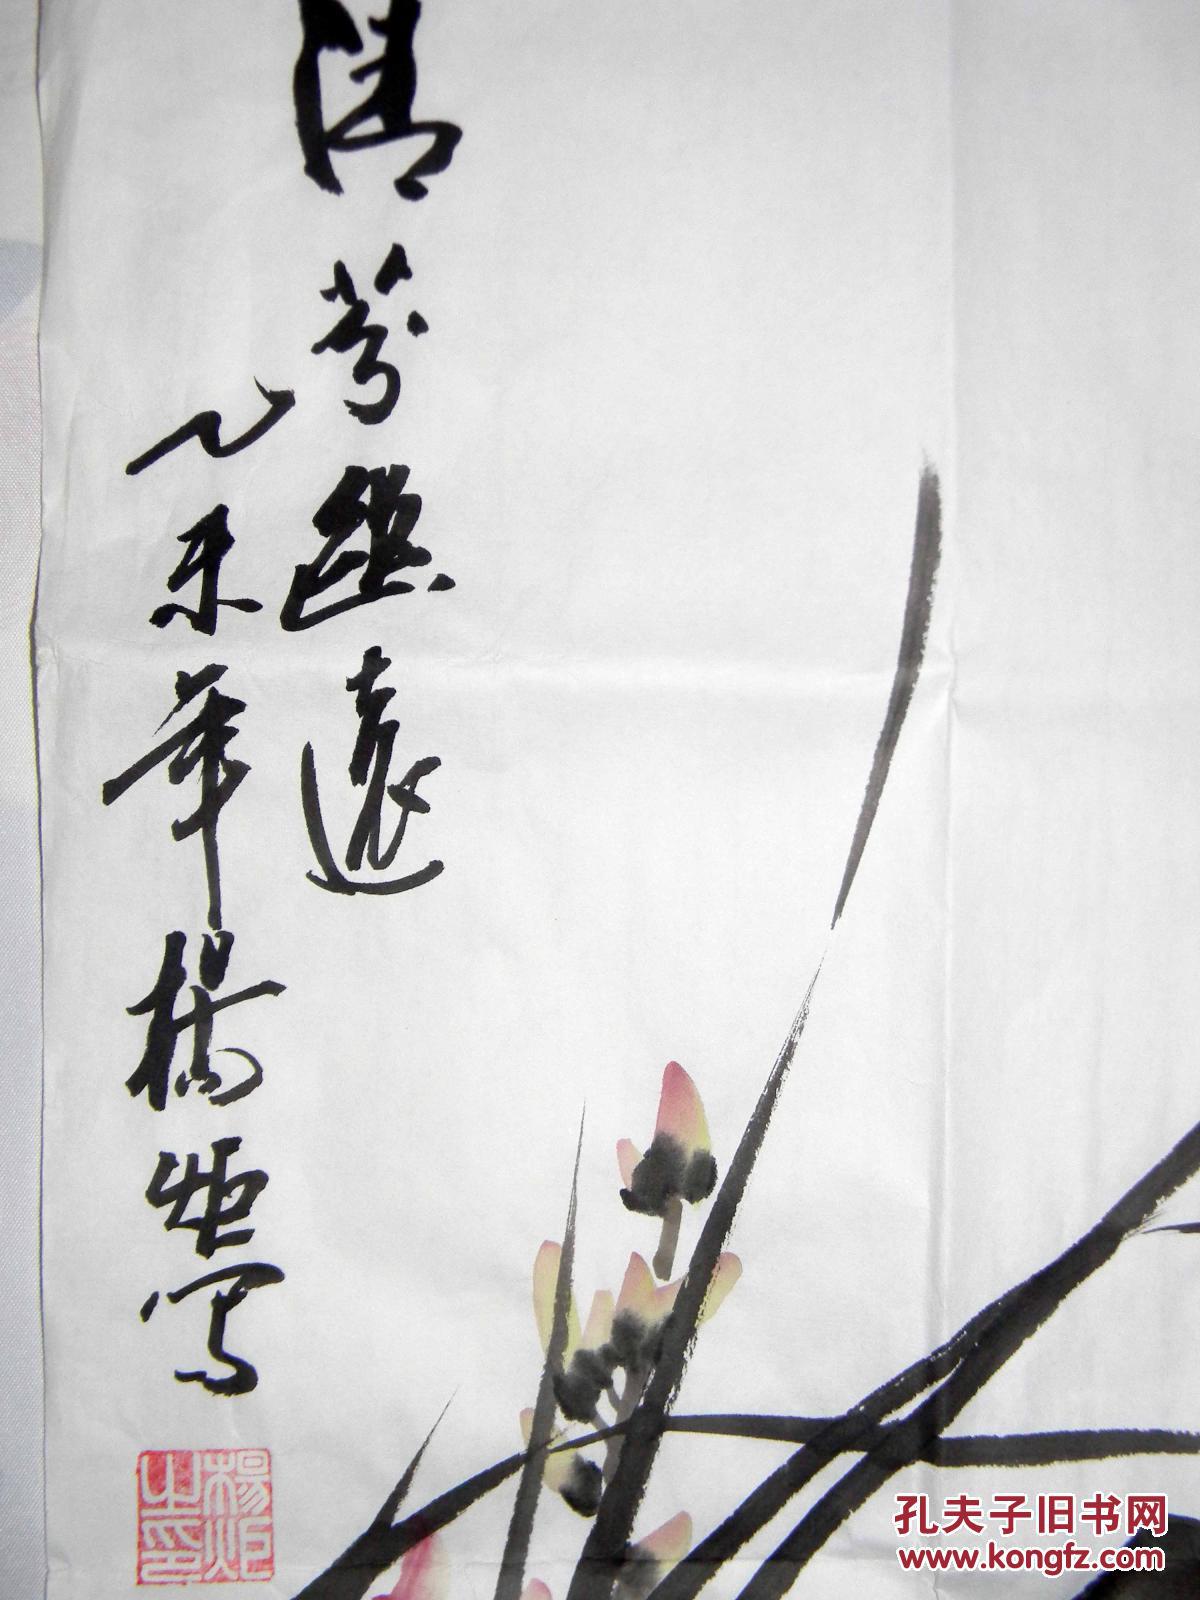 清芬幽远
乙未年杨炬写
杨炬之印
孔夫子旧书网
www.kongfz.com